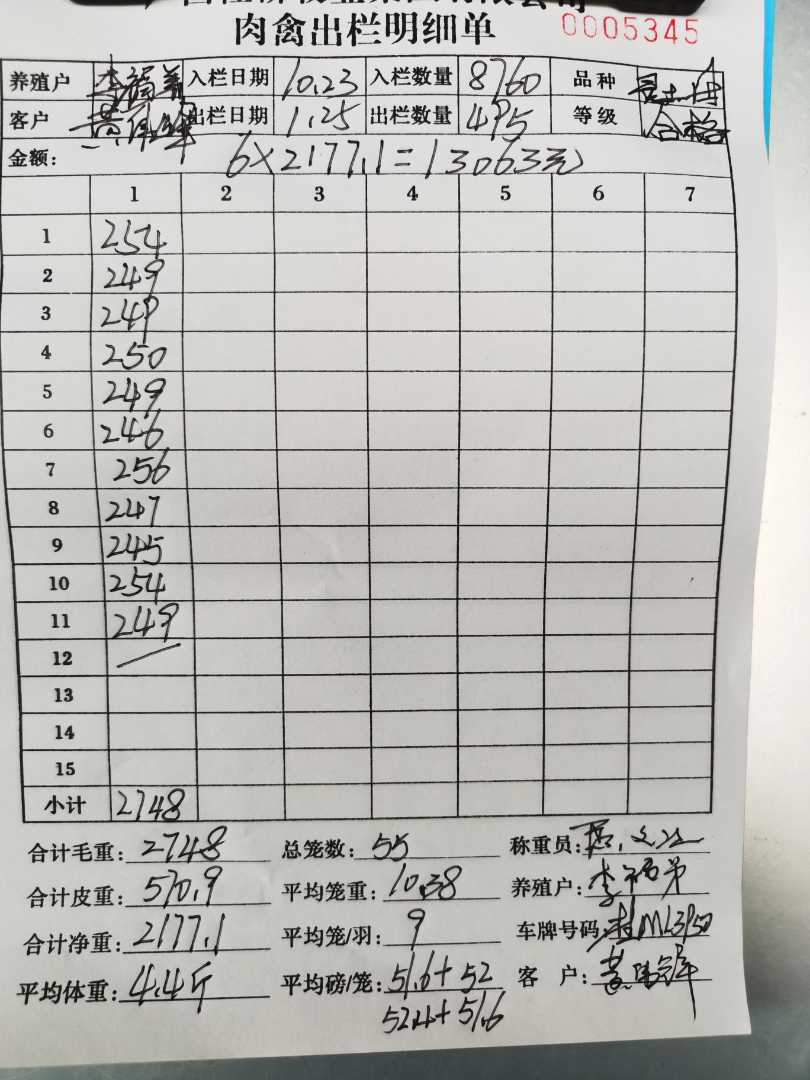 肉禽出栏明细单 0005345
养殖户 李福美 入栏日期 10.23 入栏数量 8760 品种
客户 出栏日期 1.25 出栏数量 495 等级 合格
金额: 6×2177.1=13063元
1 2 3 4 5 6 7
1 254
2 249
3 249
4 250
5 249
6 246
7 256
8 247
9 245
10 254
11 249
12 /
13
14
15
小计 2748
合计毛重: 2748 总笼数: 55 称重员:
合计皮重: 570.9 平均笼重: 10.38 养殖户: 李
合计净重: 2177.1 平均笼/羽: 9 车牌号码: 桂ML3P50
平均体重: 4.4斤 平均磅/笼: 51.6+52 客 户: 黄
52.4+51.6